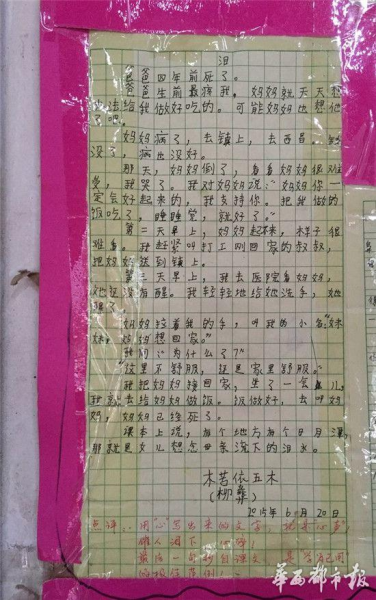 泪
爸爸四年前死了。
爸爸生前最疼我，妈妈就天天想
办法给我做好吃的。可能妈妈也想他
了吧。
妈妈病了，去镇上，去西昌。钱
没了，病也没好。
那天，妈妈倒了，看看妈妈很难
受，我哭了。我对妈妈说："妈妈你一
定会好起来的，我支持你。把我做的
饭吃了，睡睡觉，就好了。"
第二天早上，妈妈起来，样子很
难看。我赶紧叫打工刚回家的叔叔，
把妈妈送到镇上。
第三天早上，我去医院看妈妈，
她还没有醒。我轻轻地给她洗手，她
醒了。
妈妈拉着我的手，叫我的小名"妹
妹，妈妈想回家。"
我问："为什么了？"
"这里不舒服，还是家里舒服。"
我把妈妈接回家，坐了一会儿，
我就去给妈妈做饭。饭做好，去叫妈
妈，妈妈已经死了。
课本上说，有个地方有个日月潭，
那就是女儿想念母亲流下的泪水。
木苦依五木
（柳彝）
2015年6月20日
点评：用心写出来的文章，
催人泪下
最后一句
华西都市报